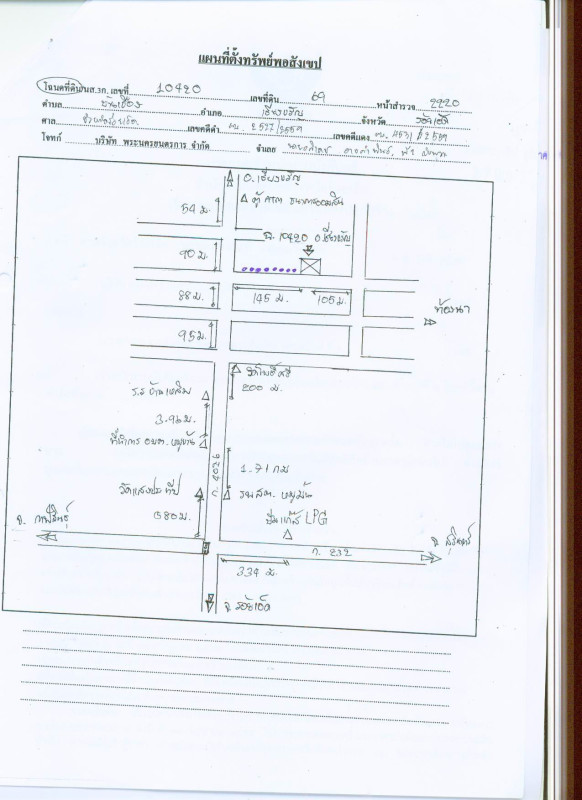 แผนที่ตั้งทรัพย์พอสังเขป
โฉนดที่ดิน/นส.3ก. เลขที่ 10420 เลขที่ดิน 69 หน้าสำรวจ 2920
ตำบล อำเภอ เชียงขวัญ จังหวัด ร้อยเอ็ด
ศาล จังหวัดร้อยเอ็ด เลขคดีดำ เลขคดีแดง
โจทก์ บริษัท พระนครยนตรการ จำกัด จำเลย
อ. เชียงขวัญ
54 ม. ตู้ ATM ธนาคารออมสิน
ฉ. 10420 อ.เชียงขวัญ
90 ม.
88 ม. 145 ม. 105 ม. ท้องนา
95 ม.
วัดโพธิ์ศรี
200 ม.
ร.ร บ้านเหล่า
3.96 ม.
ที่ทำการ อบต. หมูม้น
ถ. 4026
1.71 กม
วัดแสงประทีป รพ.สต. หมูม้น
580 ม. ปั๊มแก๊ส LPG
จ. กาฬสินธุ์ จ. สุรินทร์
ถ. 232
334 ม.
จ. ร้อยเอ็ด